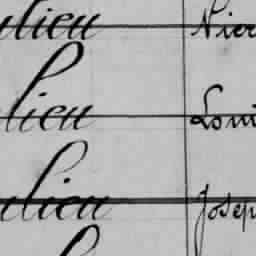 ulieu Pier
lieu Loui
ulieu Josep